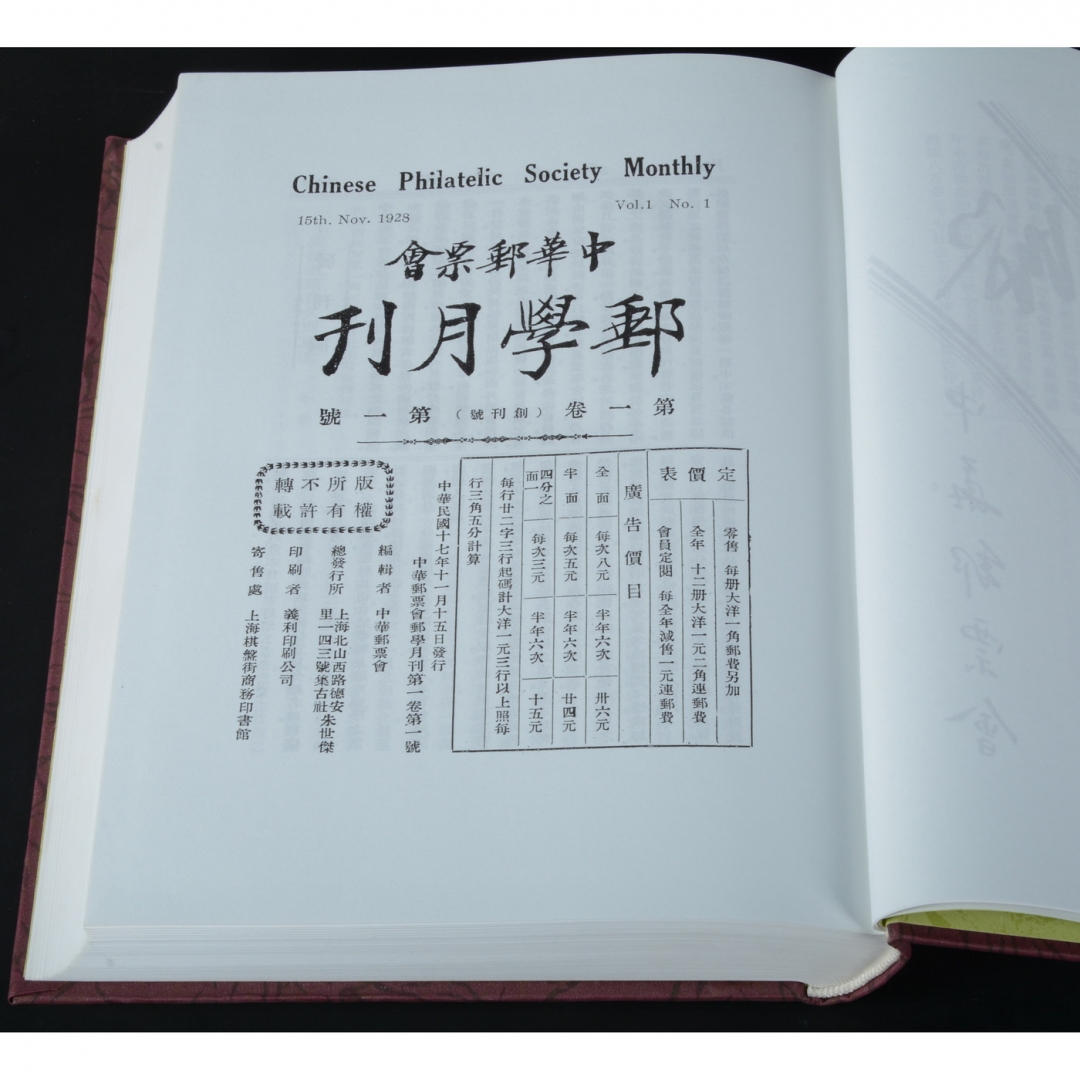 Chinese Philatelic Society Monthly
15th. Nov. 1928
Vol.1 No. 1
中華郵票會
郵學月刊
第一卷（創刊號）第一號
定價表
零售 每册大洋一角郵費另加
全年 十二册大洋一元二角連郵費
會員定閱 每全年減售一元連郵費
廣告價目
全面 每次八元 半年六次 卅六元
半面 每次五元 半年六次 廿四元
四分之一面 每次三元 半年六次 十五元
每行廿二字三行起碼計大洋一元三行以上照每
行三角五分計算
中華民國十七年十一月十五日發行
中華郵票會郵學月刊第一卷第一號
版權所有
不許轉載
編輯者 中華郵票會
總發行所 上海北山西路德安里一四三號集古社朱世傑
印刷者 義利印刷公司
寄售處 上海棋盤街商務印書館